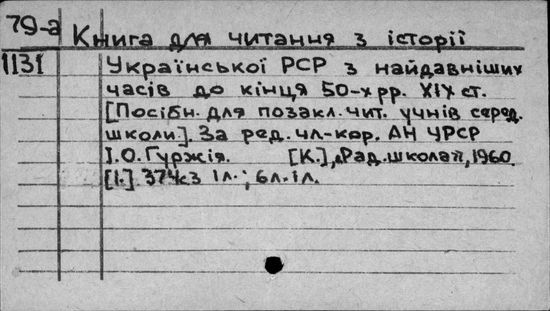 79-а Книга для читання з історії
1131 Української РСР з найдавніших
часів до кінця 50-х рр. XIX ст.
[Посібн. для позакл. чит. учнів серед.
школи.]. За ред. чл-кор. АН УРСР
І.О. Гуржія. [К.], „Рад. школа", 1960.
[1.] 374с з іл.; 6л. іл.